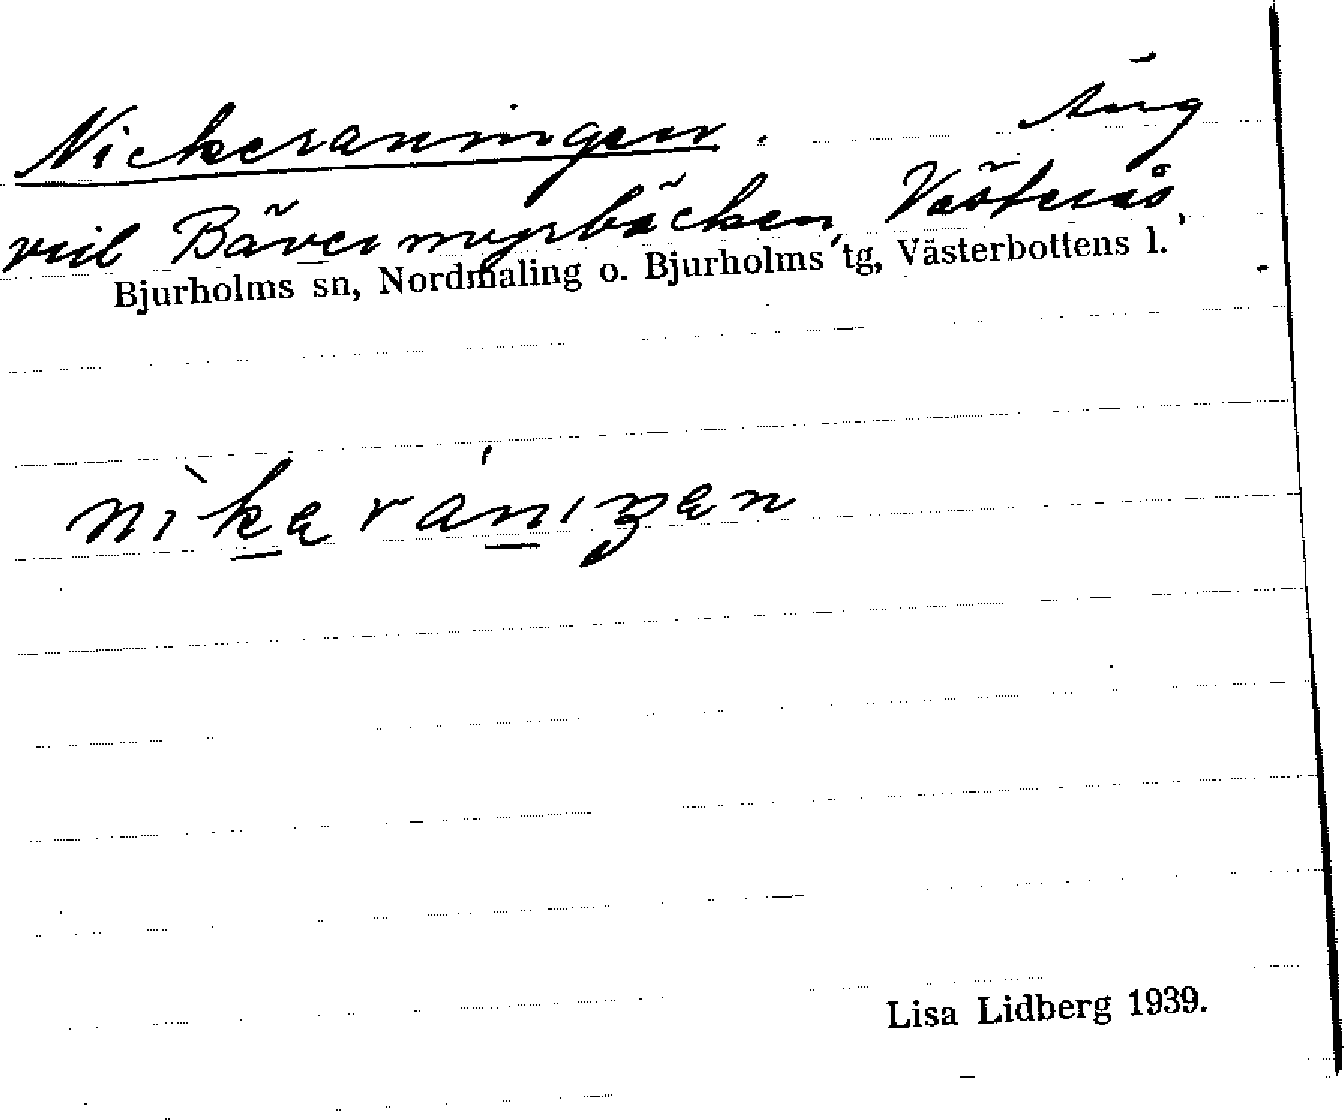 Nickeraningen. Äng
vid Bävermyrbäcken, Västerås,
Bjurholms sn, Nordmaling o. Bjurholms tg, Västerbottens l.
Lisa Lidberg 1939.